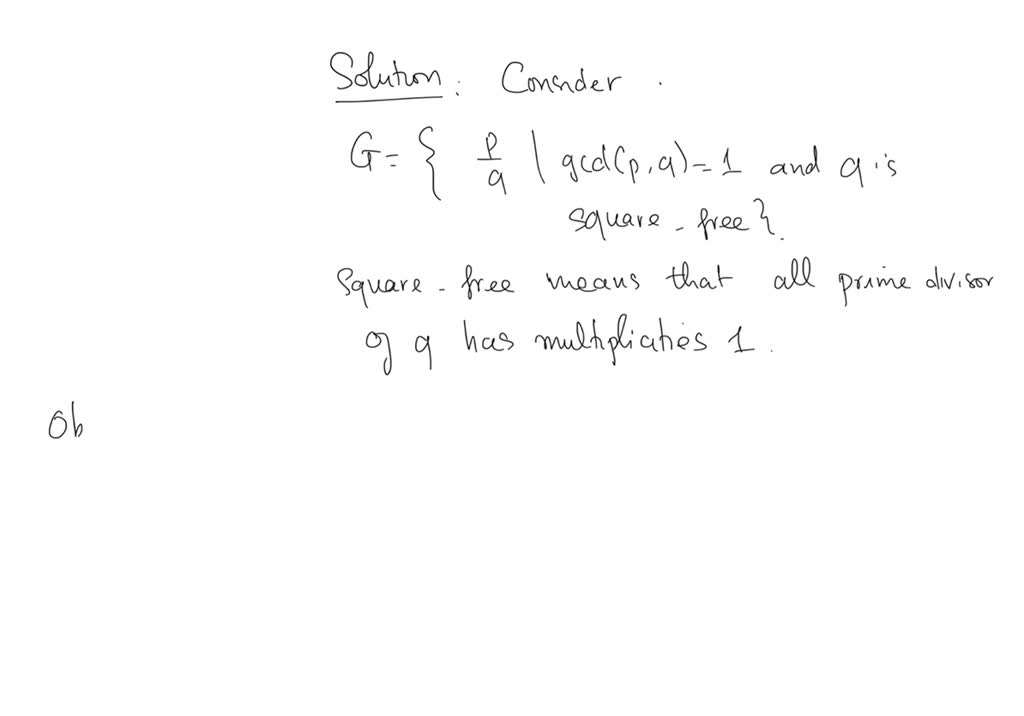 Solution: Consider.
G = { p/q | gcd(p,q) = 1 and q is
square-free }.
Square-free means that all prime divisor
of q has multipliciaties 1.
Ob